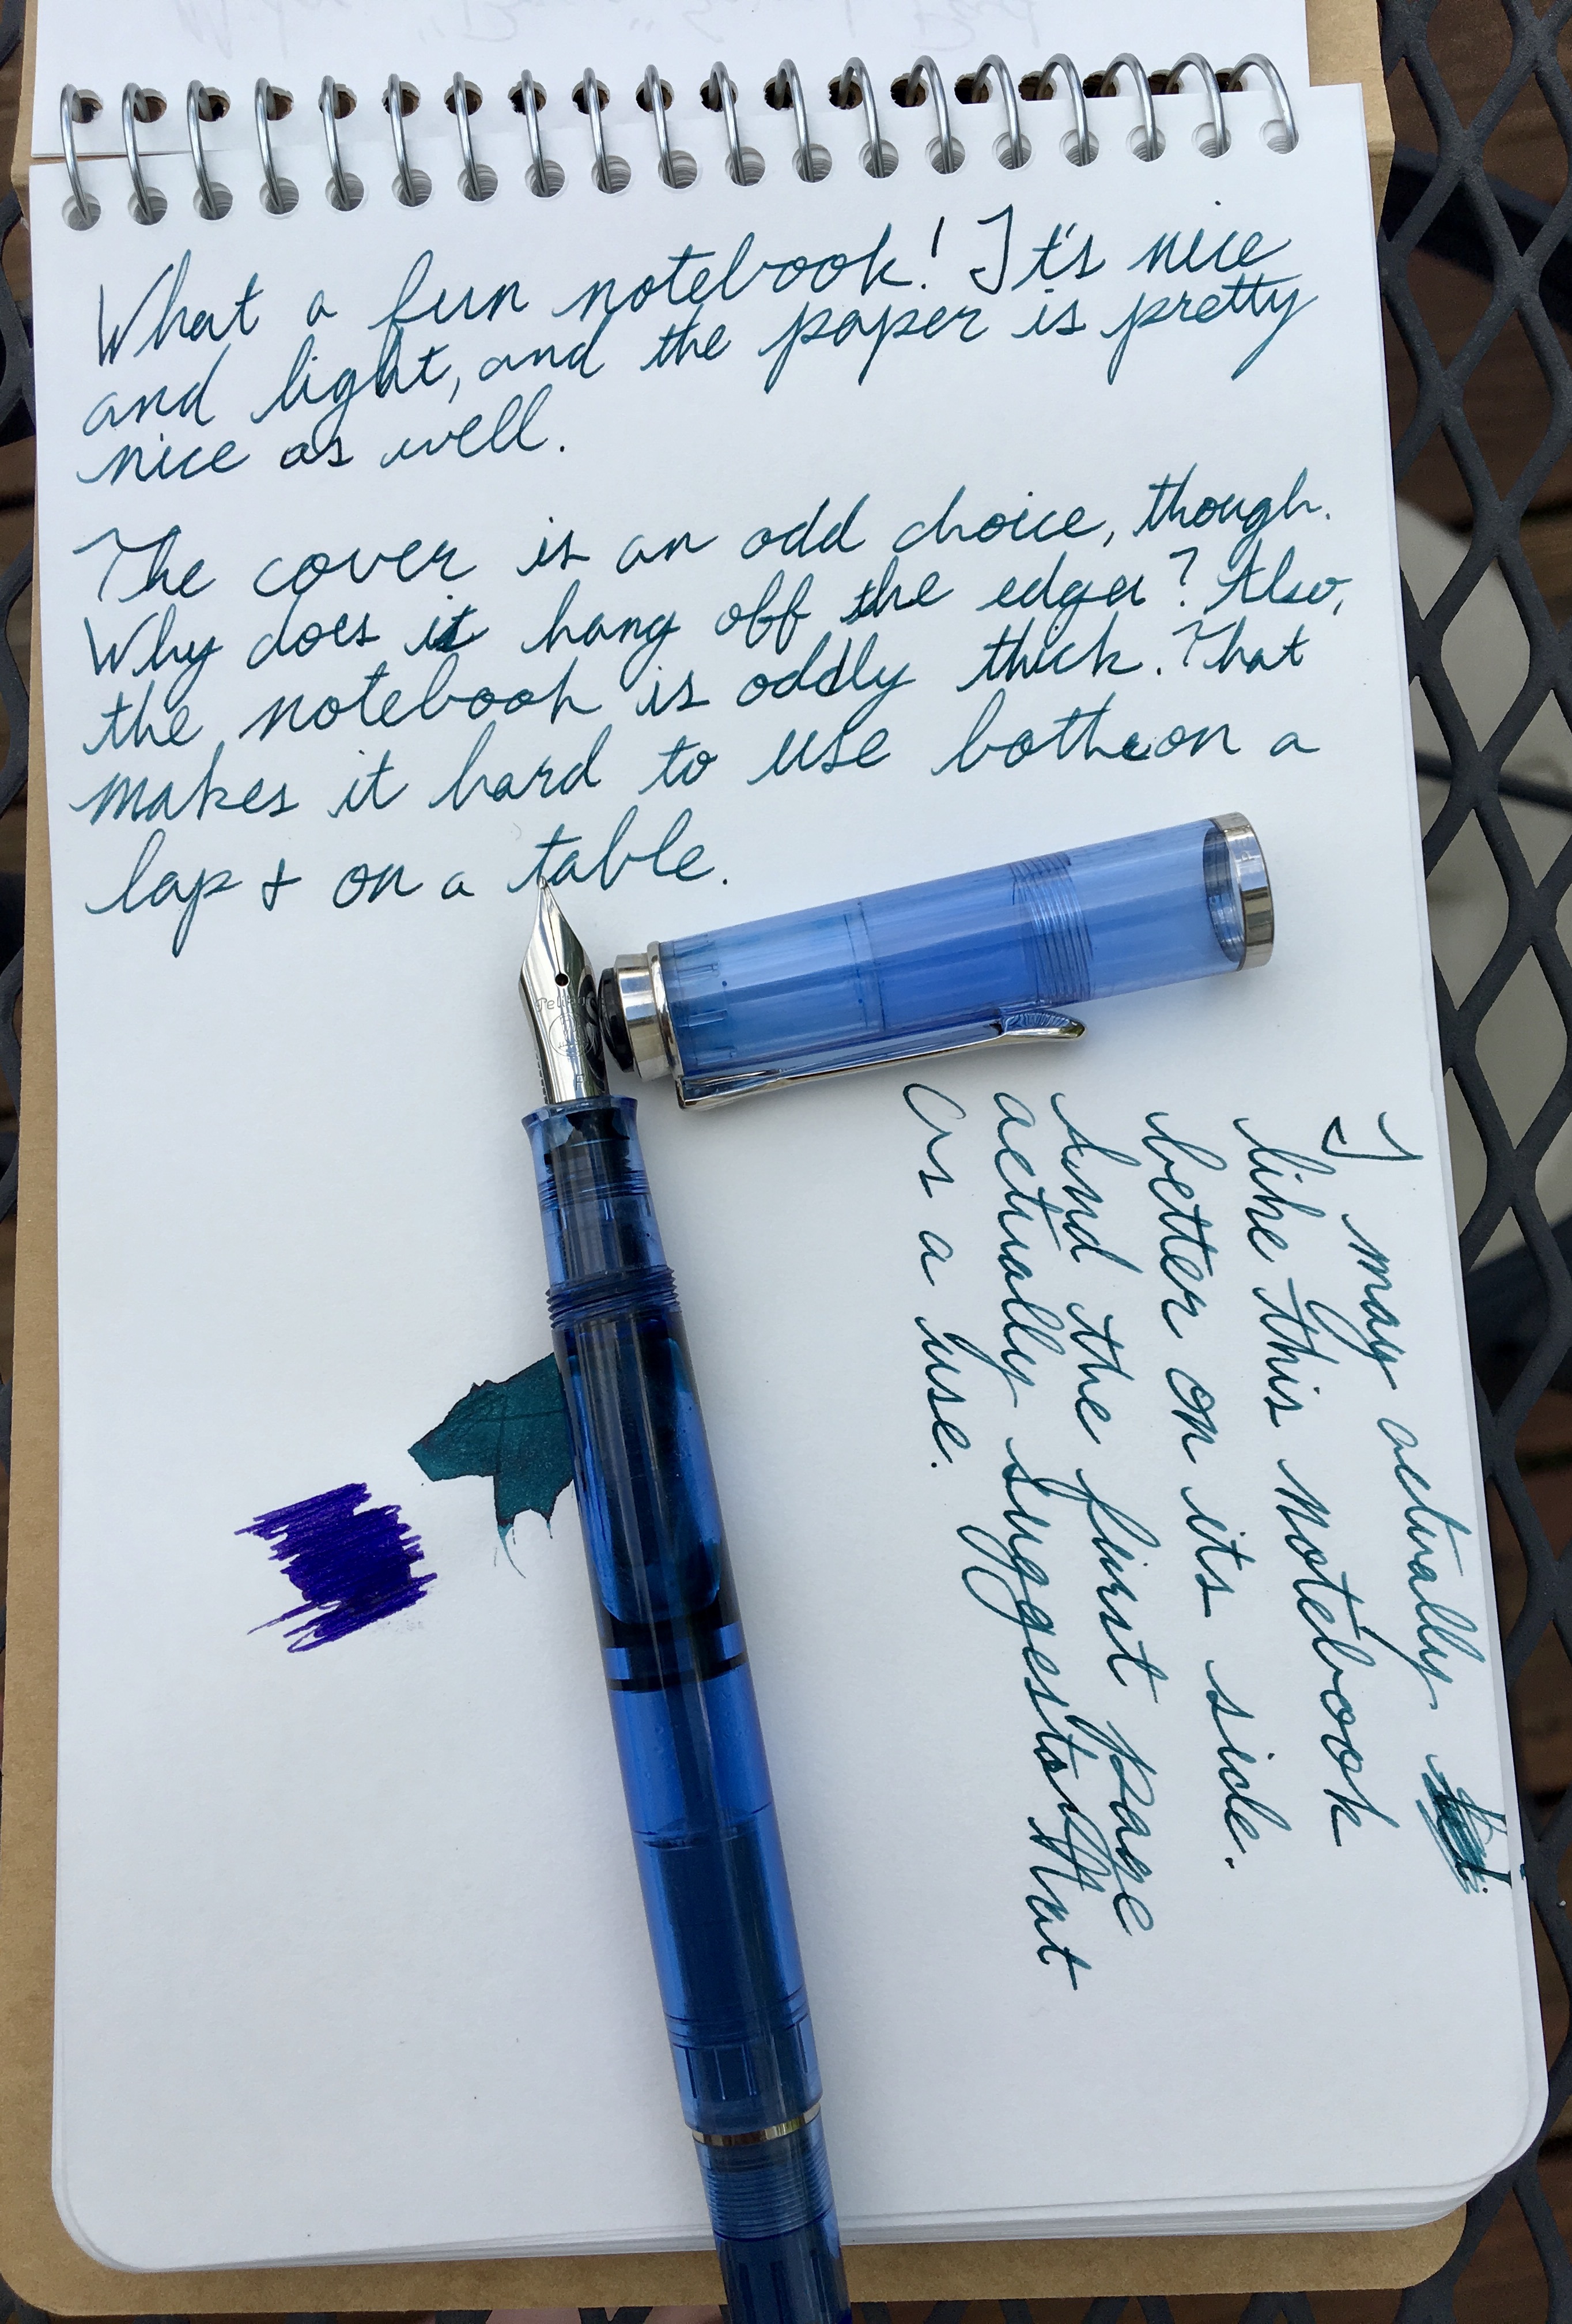 What a fun notebook! It's nice
and light, and the paper is pretty
nice as well.
The cover is an odd choice, though.
Why does it hang off the edges? Also,
the notebook is oddly thick. That
makes it hard to use both on a
lap & on a table.
I may actually
like this notebook
better on its side.
And the first page
actually suggests that
as a use.